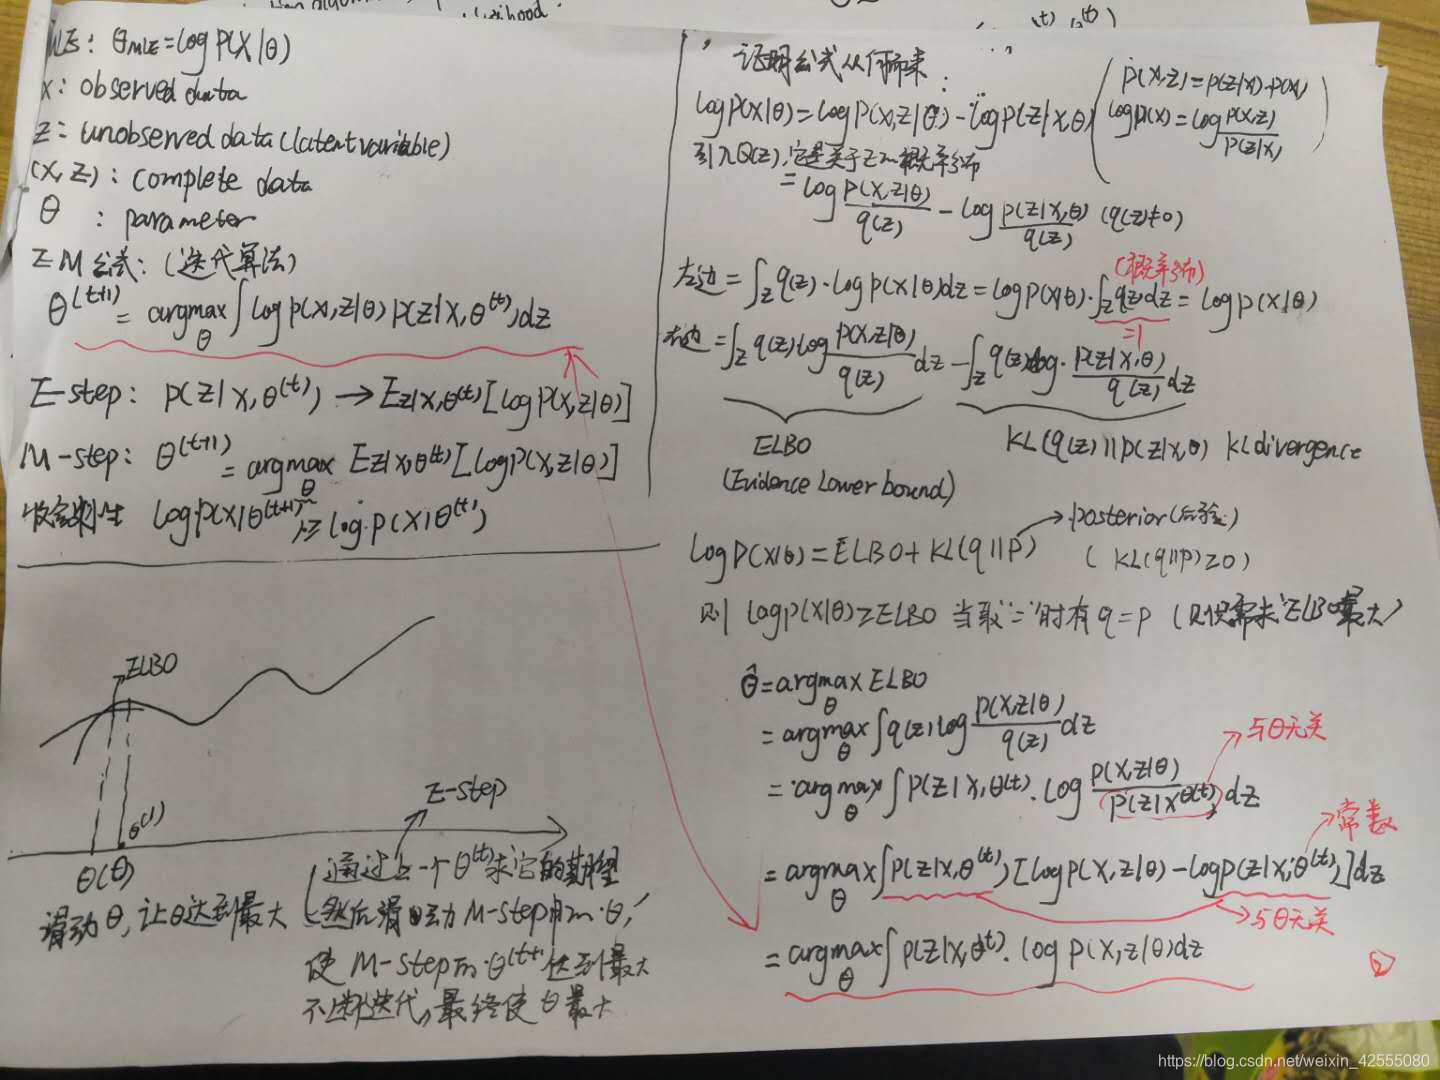 likelihood.
MLE: θMLE = log P(X|θ)
X: observed data
Z: unobserved data (latent variable)
(X, Z): complete data
θ : parameter
EM公式: (迭代算法)
θ^(t+1) = argmax_θ ∫ log P(X,Z|θ) P(Z|X,θ^(t)) dZ
E-step: P(Z|X,θ^(t)) → E_Z|X,θ^(t) [log P(X,Z|θ)]
M-step: θ^(t+1) = argmax_θ E_Z|X,θ^(t) [log P(X,Z|θ)]
收敛性 log P(X|θ^(t+1)) ≥ log P(X|θ^(t))
ELBO
θ^(1)
θ(t)
E-step
滑动θ, 让θ达到最大
通过上一个θ^(t)求它的期望
然后滑动M-step中的θ,
使M-step的θ^(t+1)达到最大
不断迭代, 最终使θ最大
证明公式从何而来:
log P(X|θ) = log P(X,Z|θ) - log P(Z|X,θ)
(P(X,Z) = P(Z|X)·P(X)
log P(X) = log P(X,Z)/P(Z|X))
引入Q(Z), 它是关于Z的概率分布
= log P(X,Z|θ)/q(Z) - log P(Z|X,θ)/q(Z) (q(Z)≠0)
(概率分布)
左边 = ∫_Z q(Z)·log P(X|θ) dZ = log P(X|θ)·∫_Z q(Z) dZ = log P(X|θ)
=1
右边 = ∫_Z q(Z) log P(X,Z|θ)/q(Z) dZ - ∫_Z q(Z) log P(Z|X,θ)/q(Z) dZ
ELBO
KL(q(Z)||P(Z|X,θ)) KL divergence
(Evidence Lower bound)
→posterior(后验)
log P(X|θ) = ELBO + KL(q||P) ( KL(q||P) ≥ 0 )
则 log P(X|θ) ≥ ELBO 当取"="时有 q=P (则只需求ELBO最大)
θ̂ = argmax_θ ELBO
= argmax_θ ∫ q(Z) log P(X,Z|θ)/q(Z) dZ
与θ无关
= argmax_θ ∫ P(Z|X,θ^(t))·log P(X,Z|θ)/P(Z|X,θ^(t)) dZ
常数
= argmax_θ ∫ P(Z|X,θ^(t)) [log P(X,Z|θ) - log P(Z|X,θ^(t))] dZ
与θ无关
= argmax_θ ∫ P(Z|X,θ^(t))·log P(X,Z|θ) dZ
https://blog.csdn.net/weixin_42555080